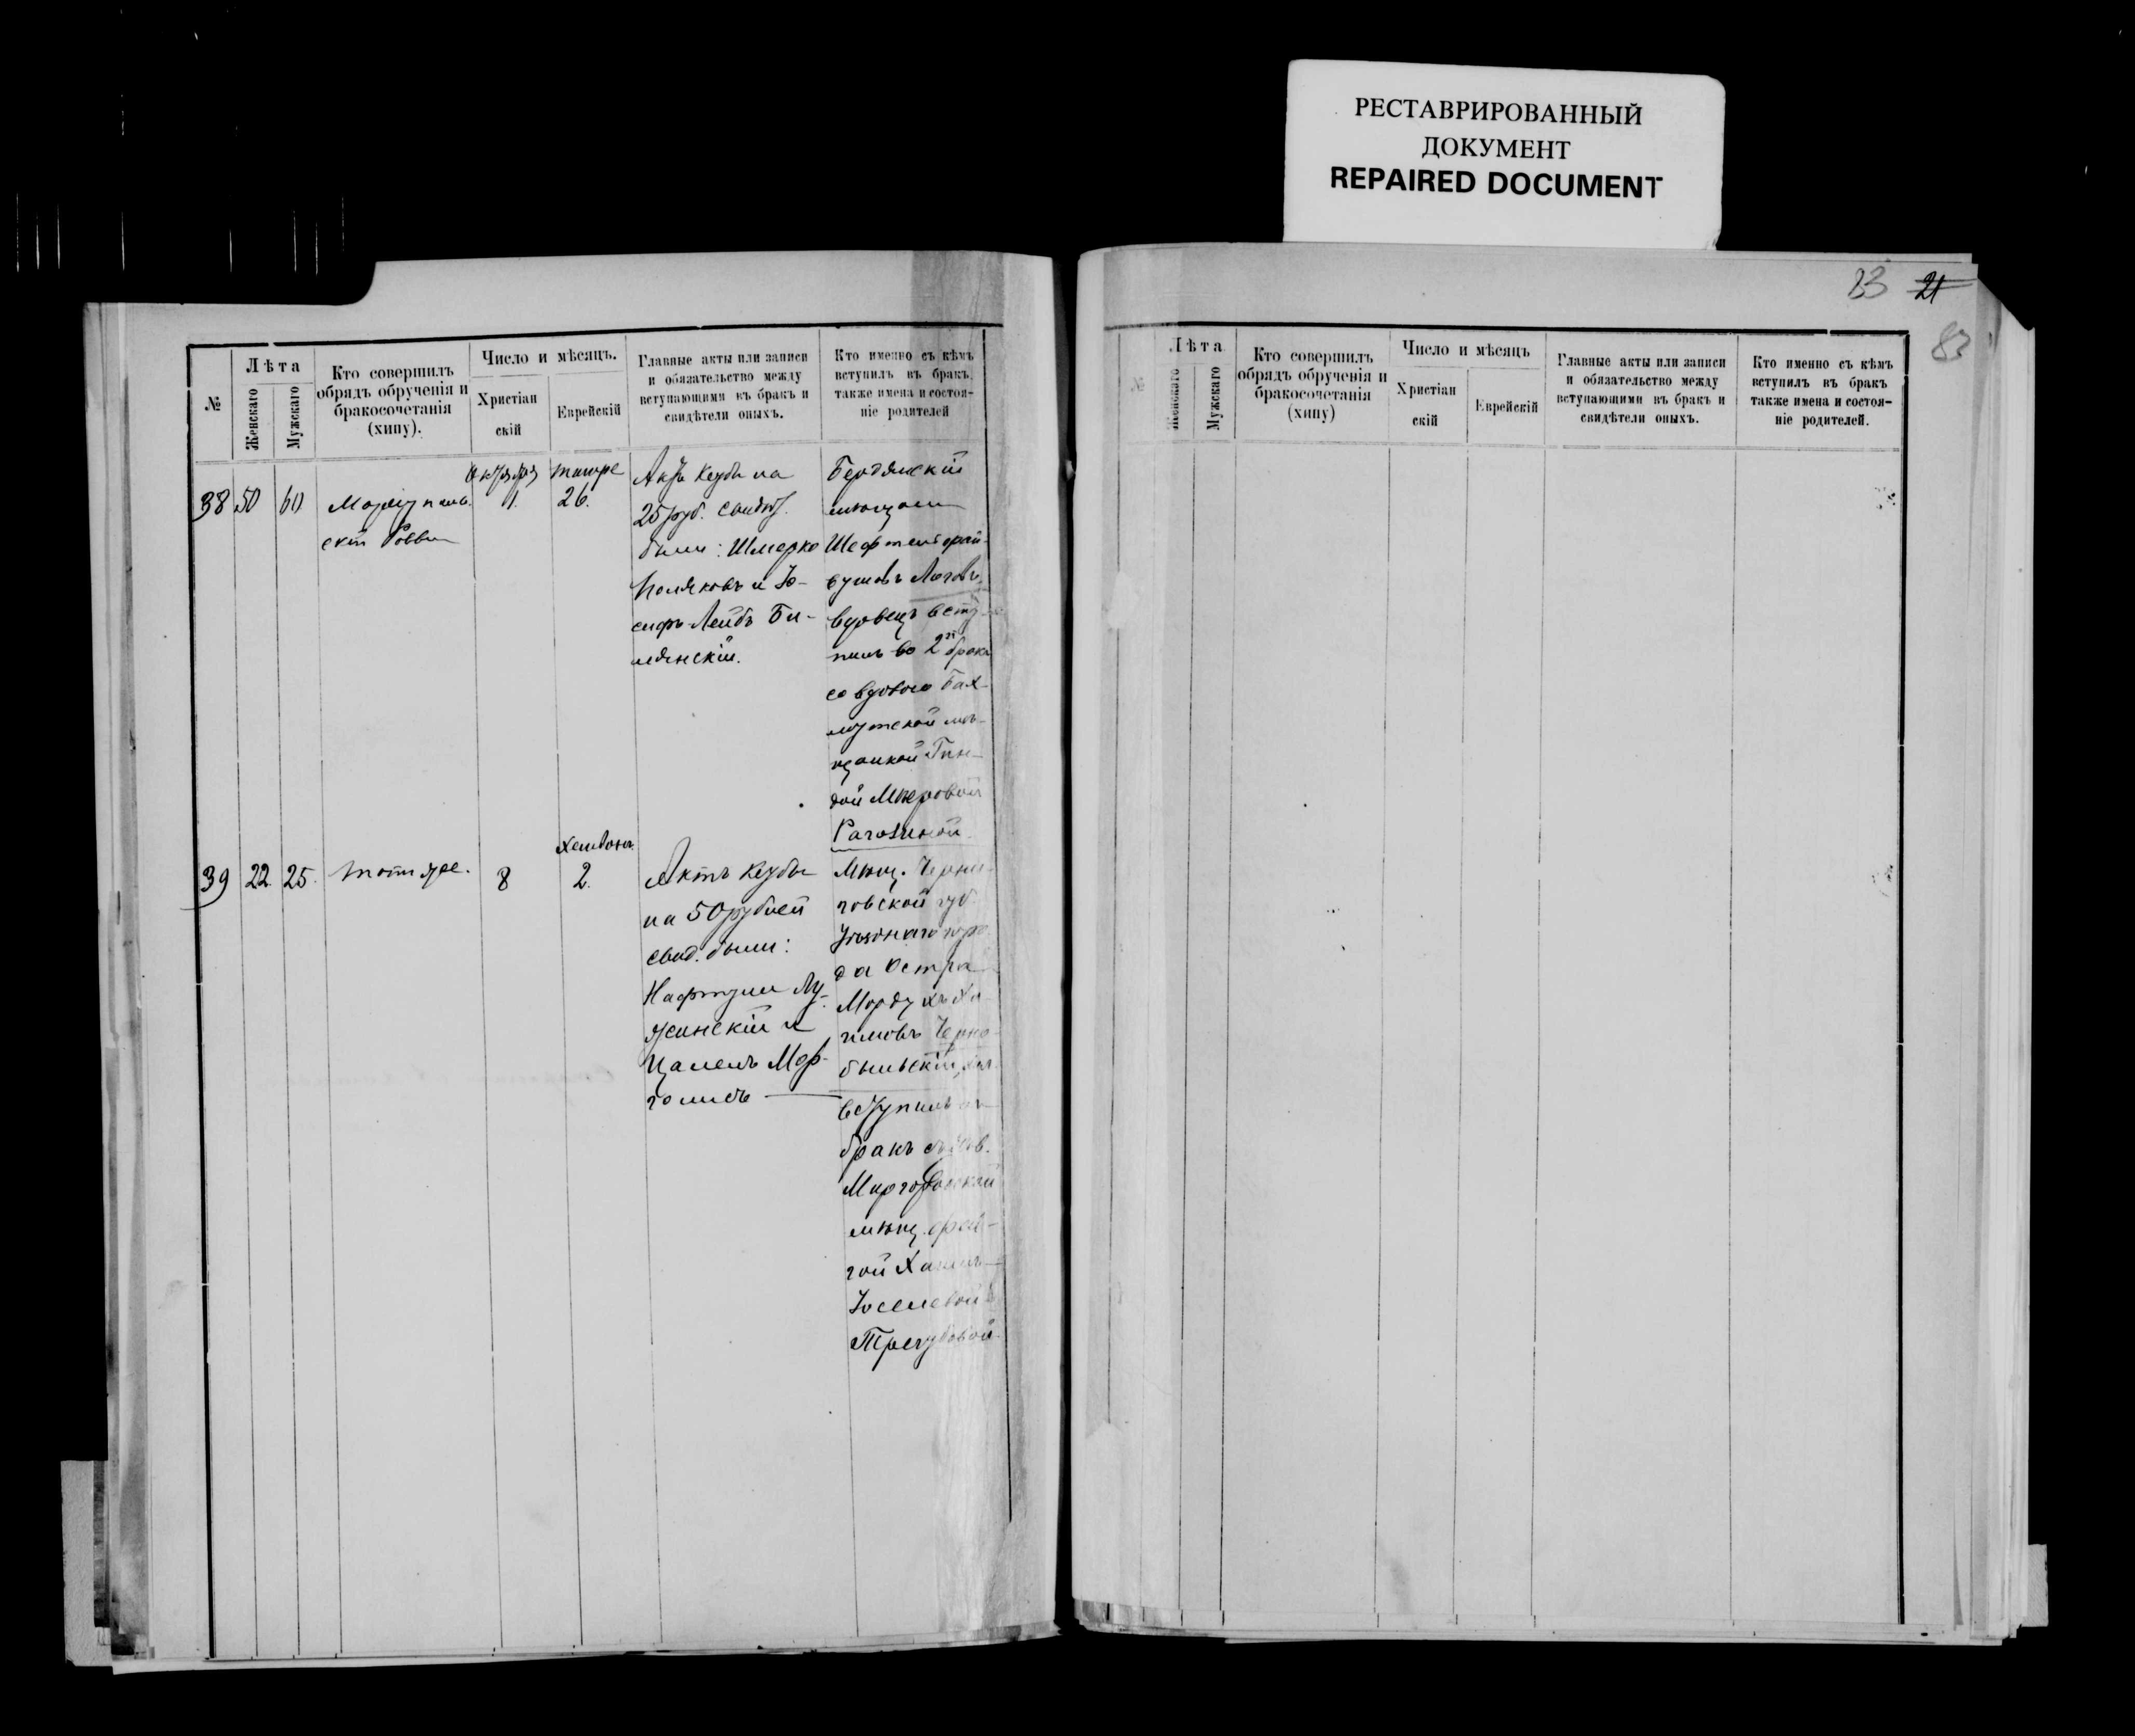 РЕСТАВРИРОВАННЫЙ
ДОКУМЕНТ
REPAIRED DOCUMENT
23 21
83
№
Лѣта
Женскаго
Мужскаго
Кто совершилъ
обрядъ обрученія и
бракосочетанія
(хипу).
Число и мѣсяцъ.
Христіан
скій
Еврейскій
Главные акты или записи
и обязательство между
вступающими въ бракъ и
свидѣтели оныхъ.
Кто именно съ кѣмъ
вступилъ въ бракъ,
также имена и состоя-
ніе родителей
38
50
60
Октября
11.
тишре
26.
Актъ Кесубы на
25 руб. Свидѣт.
были: Шмерко
Поляковъ и Іо-
сифъ-Лейбъ Би-
Бердянскій
мѣщан.
вдовецъ всту-
пилъ во 2й бракъ
со вдовою Бах-
мутской мѣ-
щанкой Гин-
дой Мееровой
Рагозиной
39
22.
25.
тотъ же.
8
Хешвонъ
2.
Актъ Кесубы
на 50 рублей
свид. были:
Нафтули Лу-
жинскій и
Цалелъ Мар-
голисъ
Мѣщ. Черни-
говской губ.
Уѣзднаго горо
да Остра
Мордухъ Ха-
имовъ Черно-
быльскій, хол.
вступилъ въ
бракъ съ
Миргородской
мѣщ.
Іоселевой
Трегубовой
№
Лѣта
Женскаго
Мужскаго
Кто совершилъ
обрядъ обрученія и
бракосочетанія
(хипу)
Число и мѣсяцъ
Христіан
скій
Еврейскій
Главные акты или записи
и обязательство между
вступающими въ бракъ и
свидѣтели оныхъ.
Кто именно съ кѣмъ
вступилъ въ бракъ
также имена и состоя-
ніе родителей.